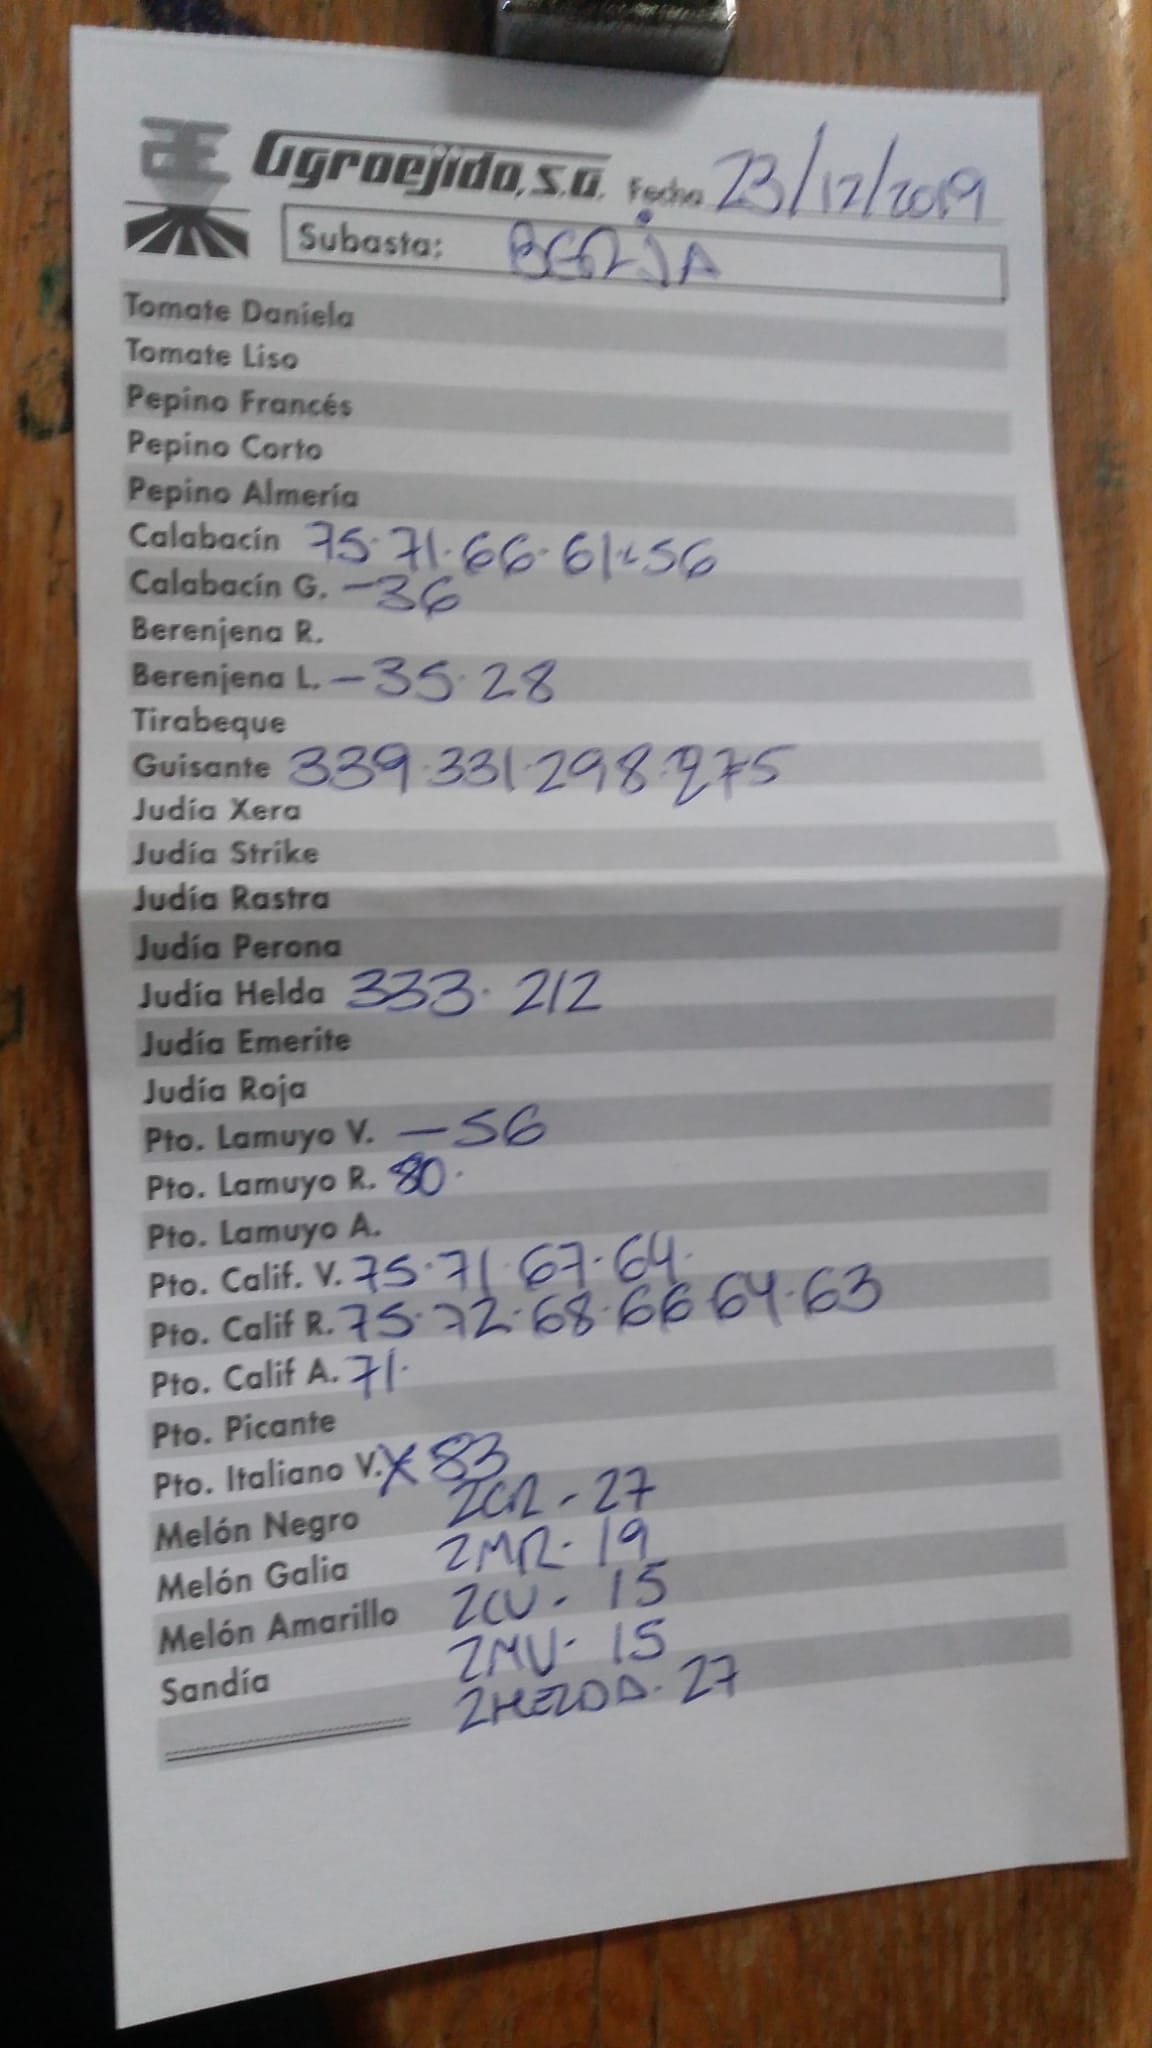 Agroejido, S.A. Fecha 23/12/2019
Subasta: BERJA
Tomate Daniela
Tomate Liso
Pepino Francés
Pepino Corto
Pepino Almería
Calabacín 75·71·66·61·56
Calabacín G. -36
Berenjena R.
Berenjena L. -35·28
Tirabeque
Guisante 339·331·298·275
Judía Xera
Judía Strike
Judía Rastra
Judía Perona
Judía Helda 333·212
Judía Emerite
Judía Roja
Pto. Lamuyo V. -56
Pto. Lamuyo R. 80·
Pto. Lamuyo A.
Pto. Calif. V. 75·71·67·64·
Pto. Calif R. 75·72·68·66·64·63
Pto. Calif A. 71·
Pto. Picante
Pto. Italiano V. X 83
Melón Negro 2CR - 27
Melón Galia 2MR - 19
Melón Amarillo 2CV - 15
Sandía 2MV - 15
27